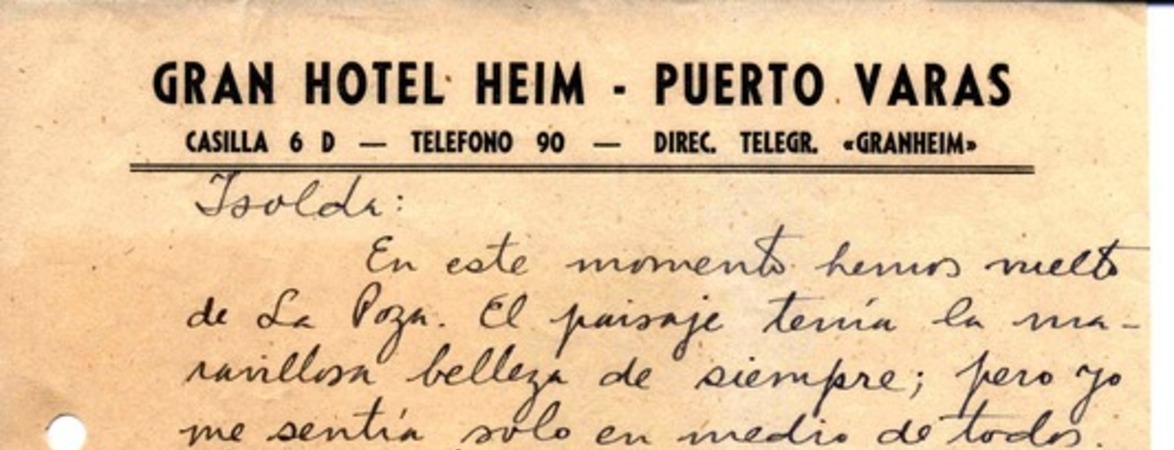 GRAN HOTEL HEIM - PUERTO VARAS
CASILLA 6 D — TELEFONO 90 — DIREC. TELEGR. «GRANHEIM»
Isolda:
En este momento hemos vuelto
de La Poza. El paisaje tenía la ma-
ravillosa belleza de siempre; pero yo
me sentía solo en medio de todos.